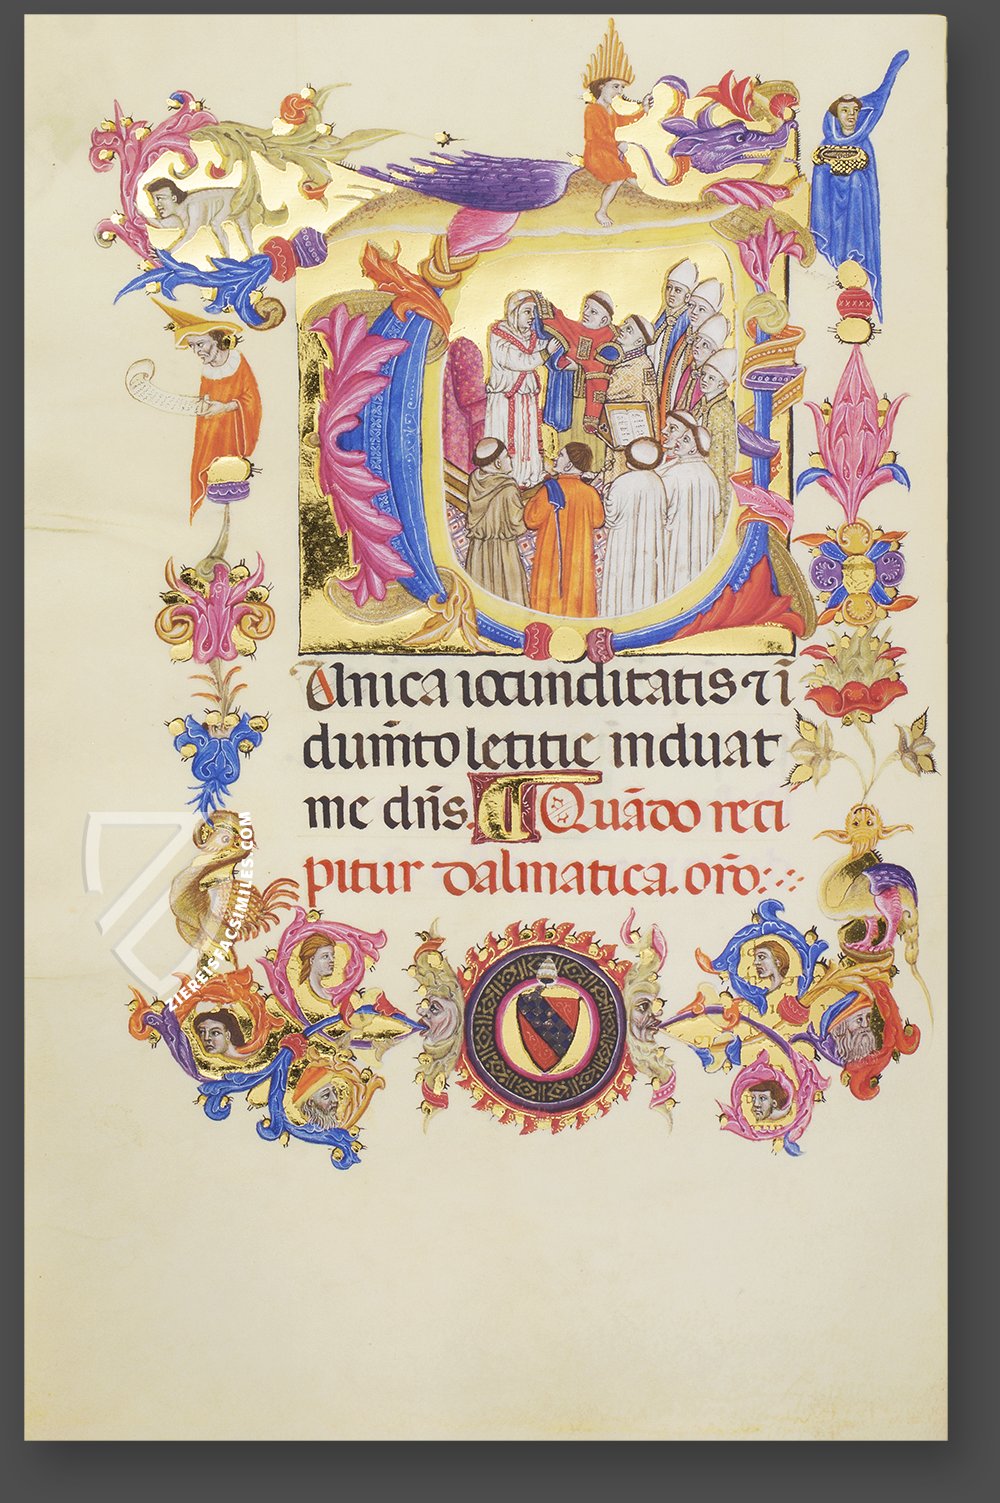 Tunica iocunditatis ⁊ i
dum̄to letitie induat
me dn̄s. T Quādo reci
pitur dalmatica. oro᷒:
ZIEREISFACSIMILES.COM